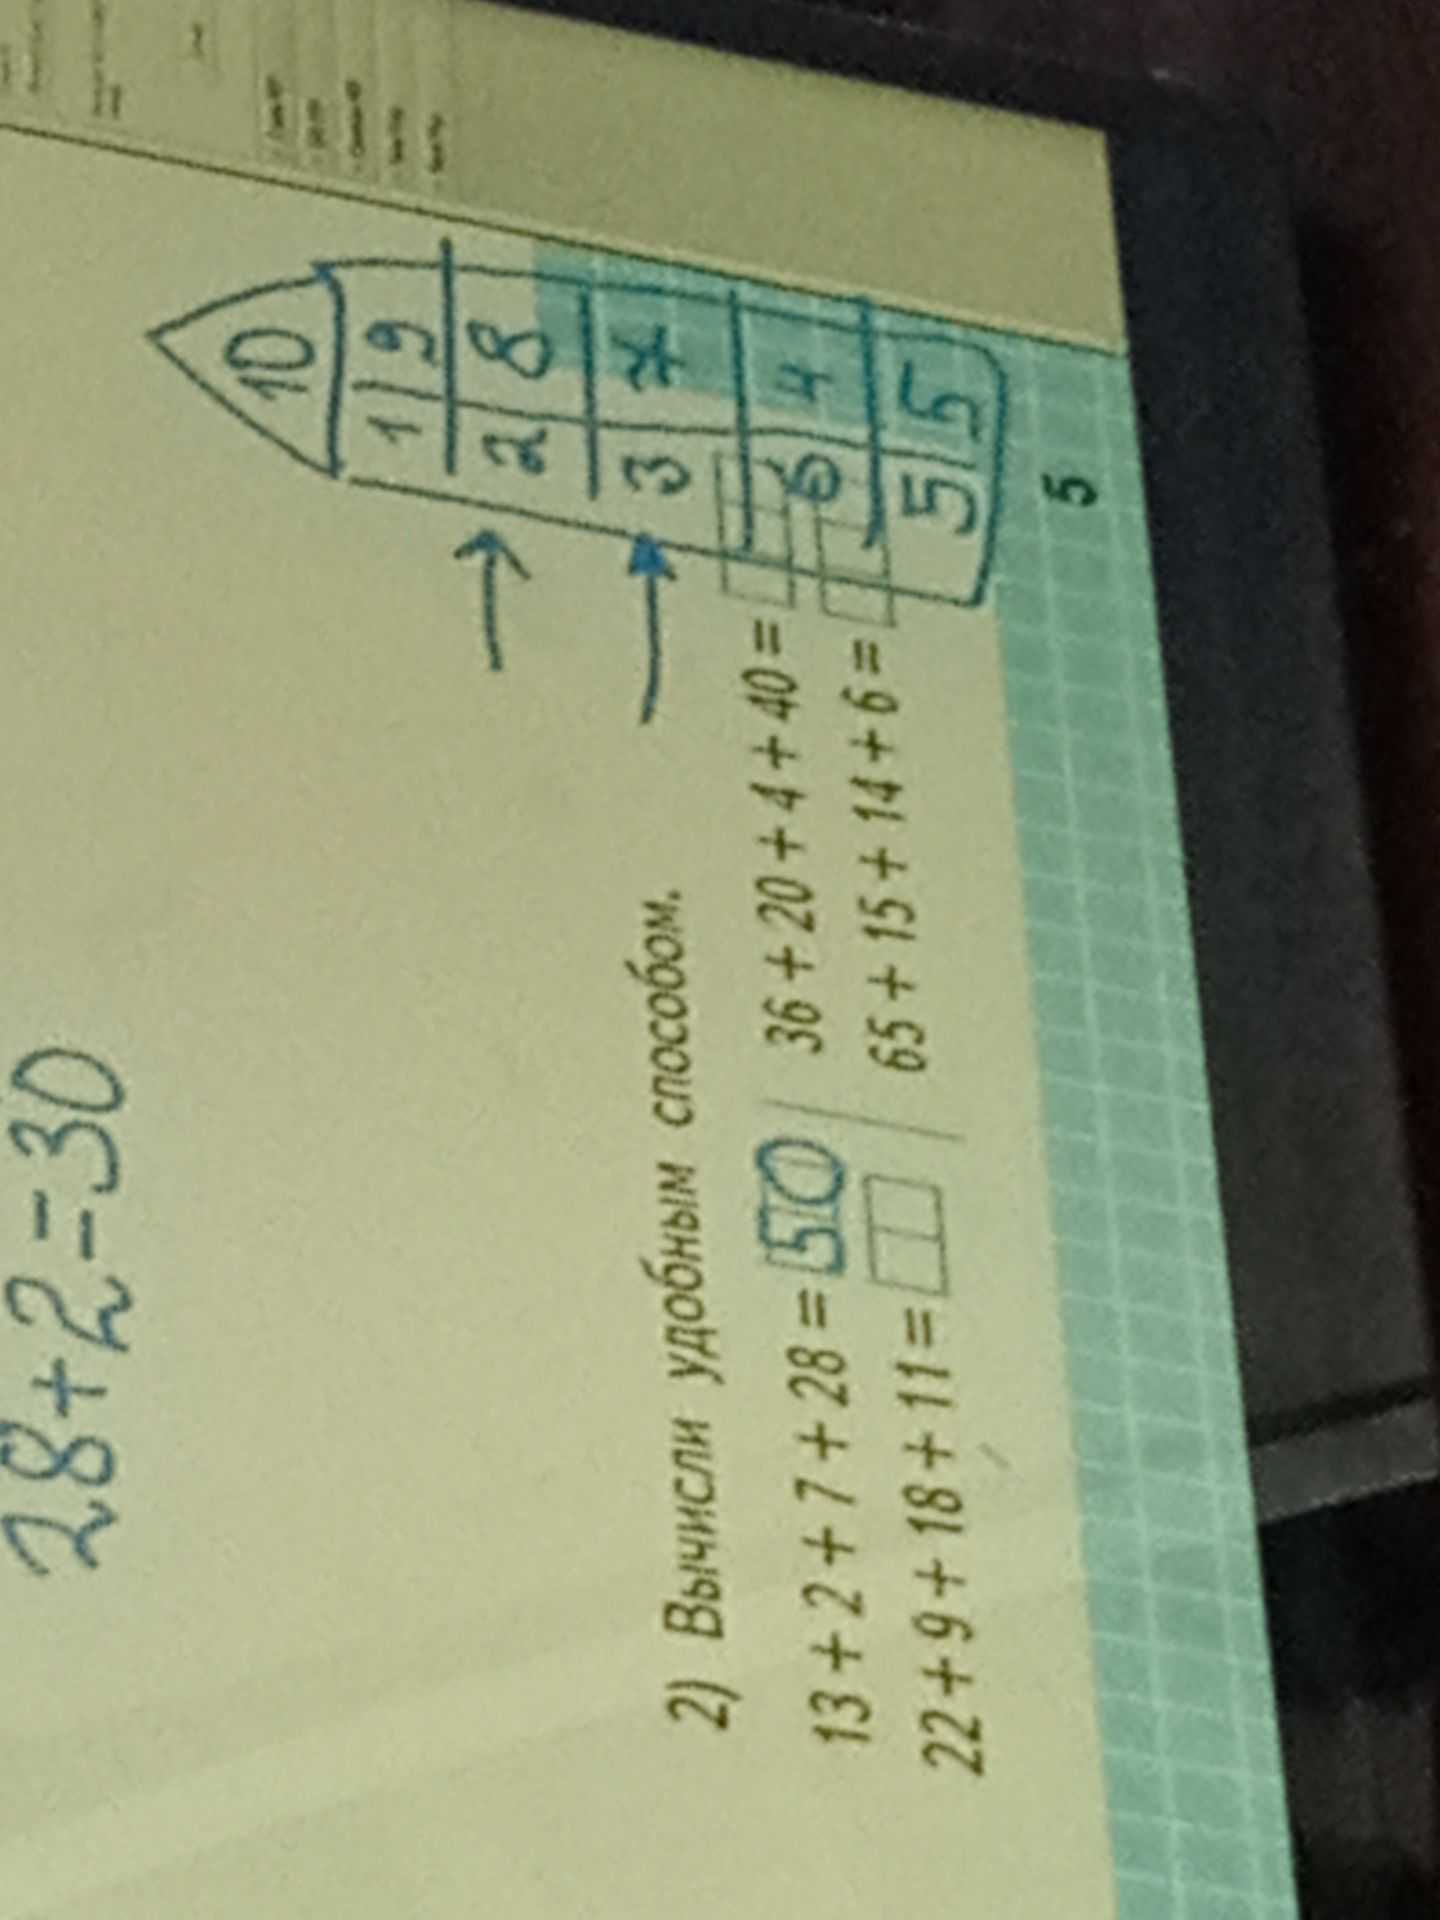 28+2=30
10
1 9
2 8
3 7
6 4
5 5
2) Вычисли удобным способом.
13 + 2 + 7 + 28 = 50
36 + 20 + 4 + 40 =
22 + 9 + 18 + 11 =
65 + 15 + 14 + 6 =
5